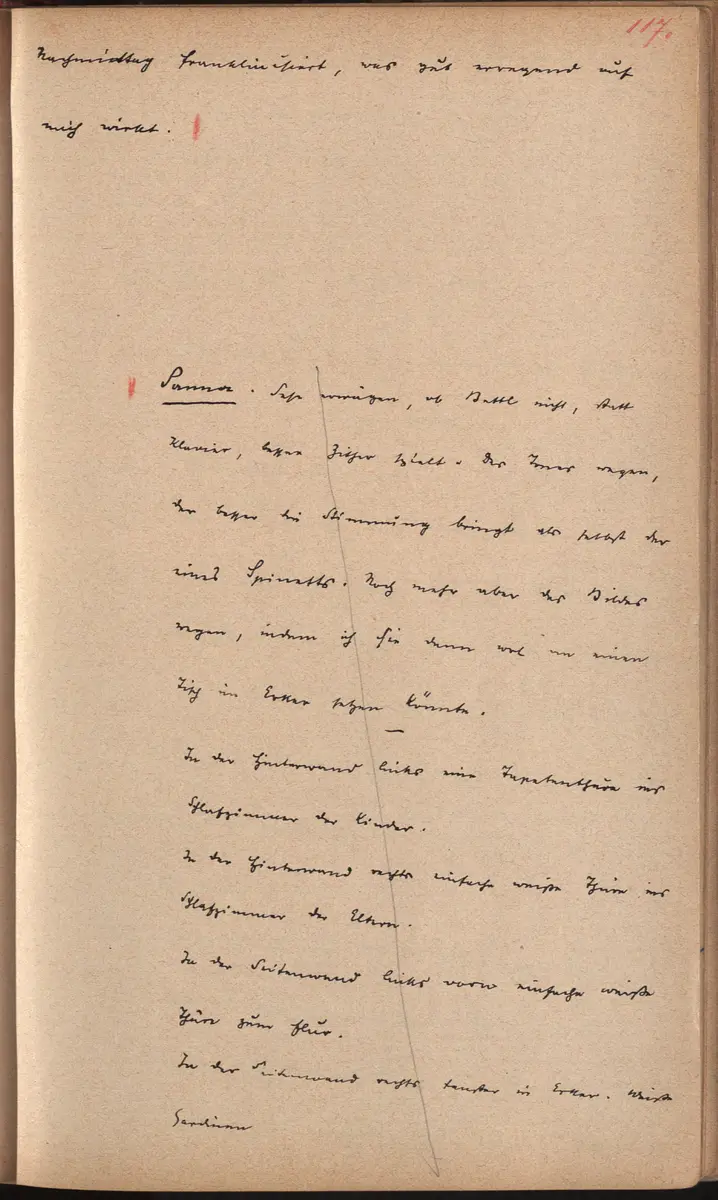 117.
Nachmittag franklinisiert, was gut erregend auf
mich wirkt.
Sanna. Sehr erwägen, ob Bettl nicht, statt
Klavier, besser Zither spielt. Des Tones wegen,
der besser die Stimmung bringt als selbst der
eines Spinetts. Noch mehr aber des Bildes
wegen, indem ich sie dann wol an einen
Tisch im Erker setzen könnte.
In der Hinterwand links eine Tapetenthüre ins
Schlafzimmer der Kinder.
In der Hinterwand rechts einfache weiße Thüre ins
Schlafzimmer der Eltern.
In der Seitenwand links vorn einfache weiße
Thüre zum Flur.
In der Seitenwand rechts Fenster in Erker. Weiße
Gardinen